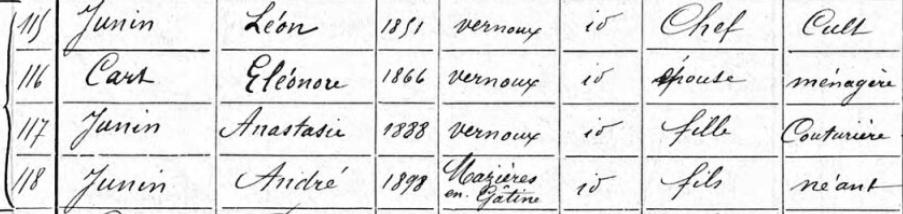 115 Junin Léon 1851 vernoux id Chef Cult
116 Cart Eléonore 1866 vernoux id épouse ménagère
117 Junin Anastasie 1888 vernoux id fille Couturière
118 Junin André 1898 Mazières en. Gâtine id fils néant